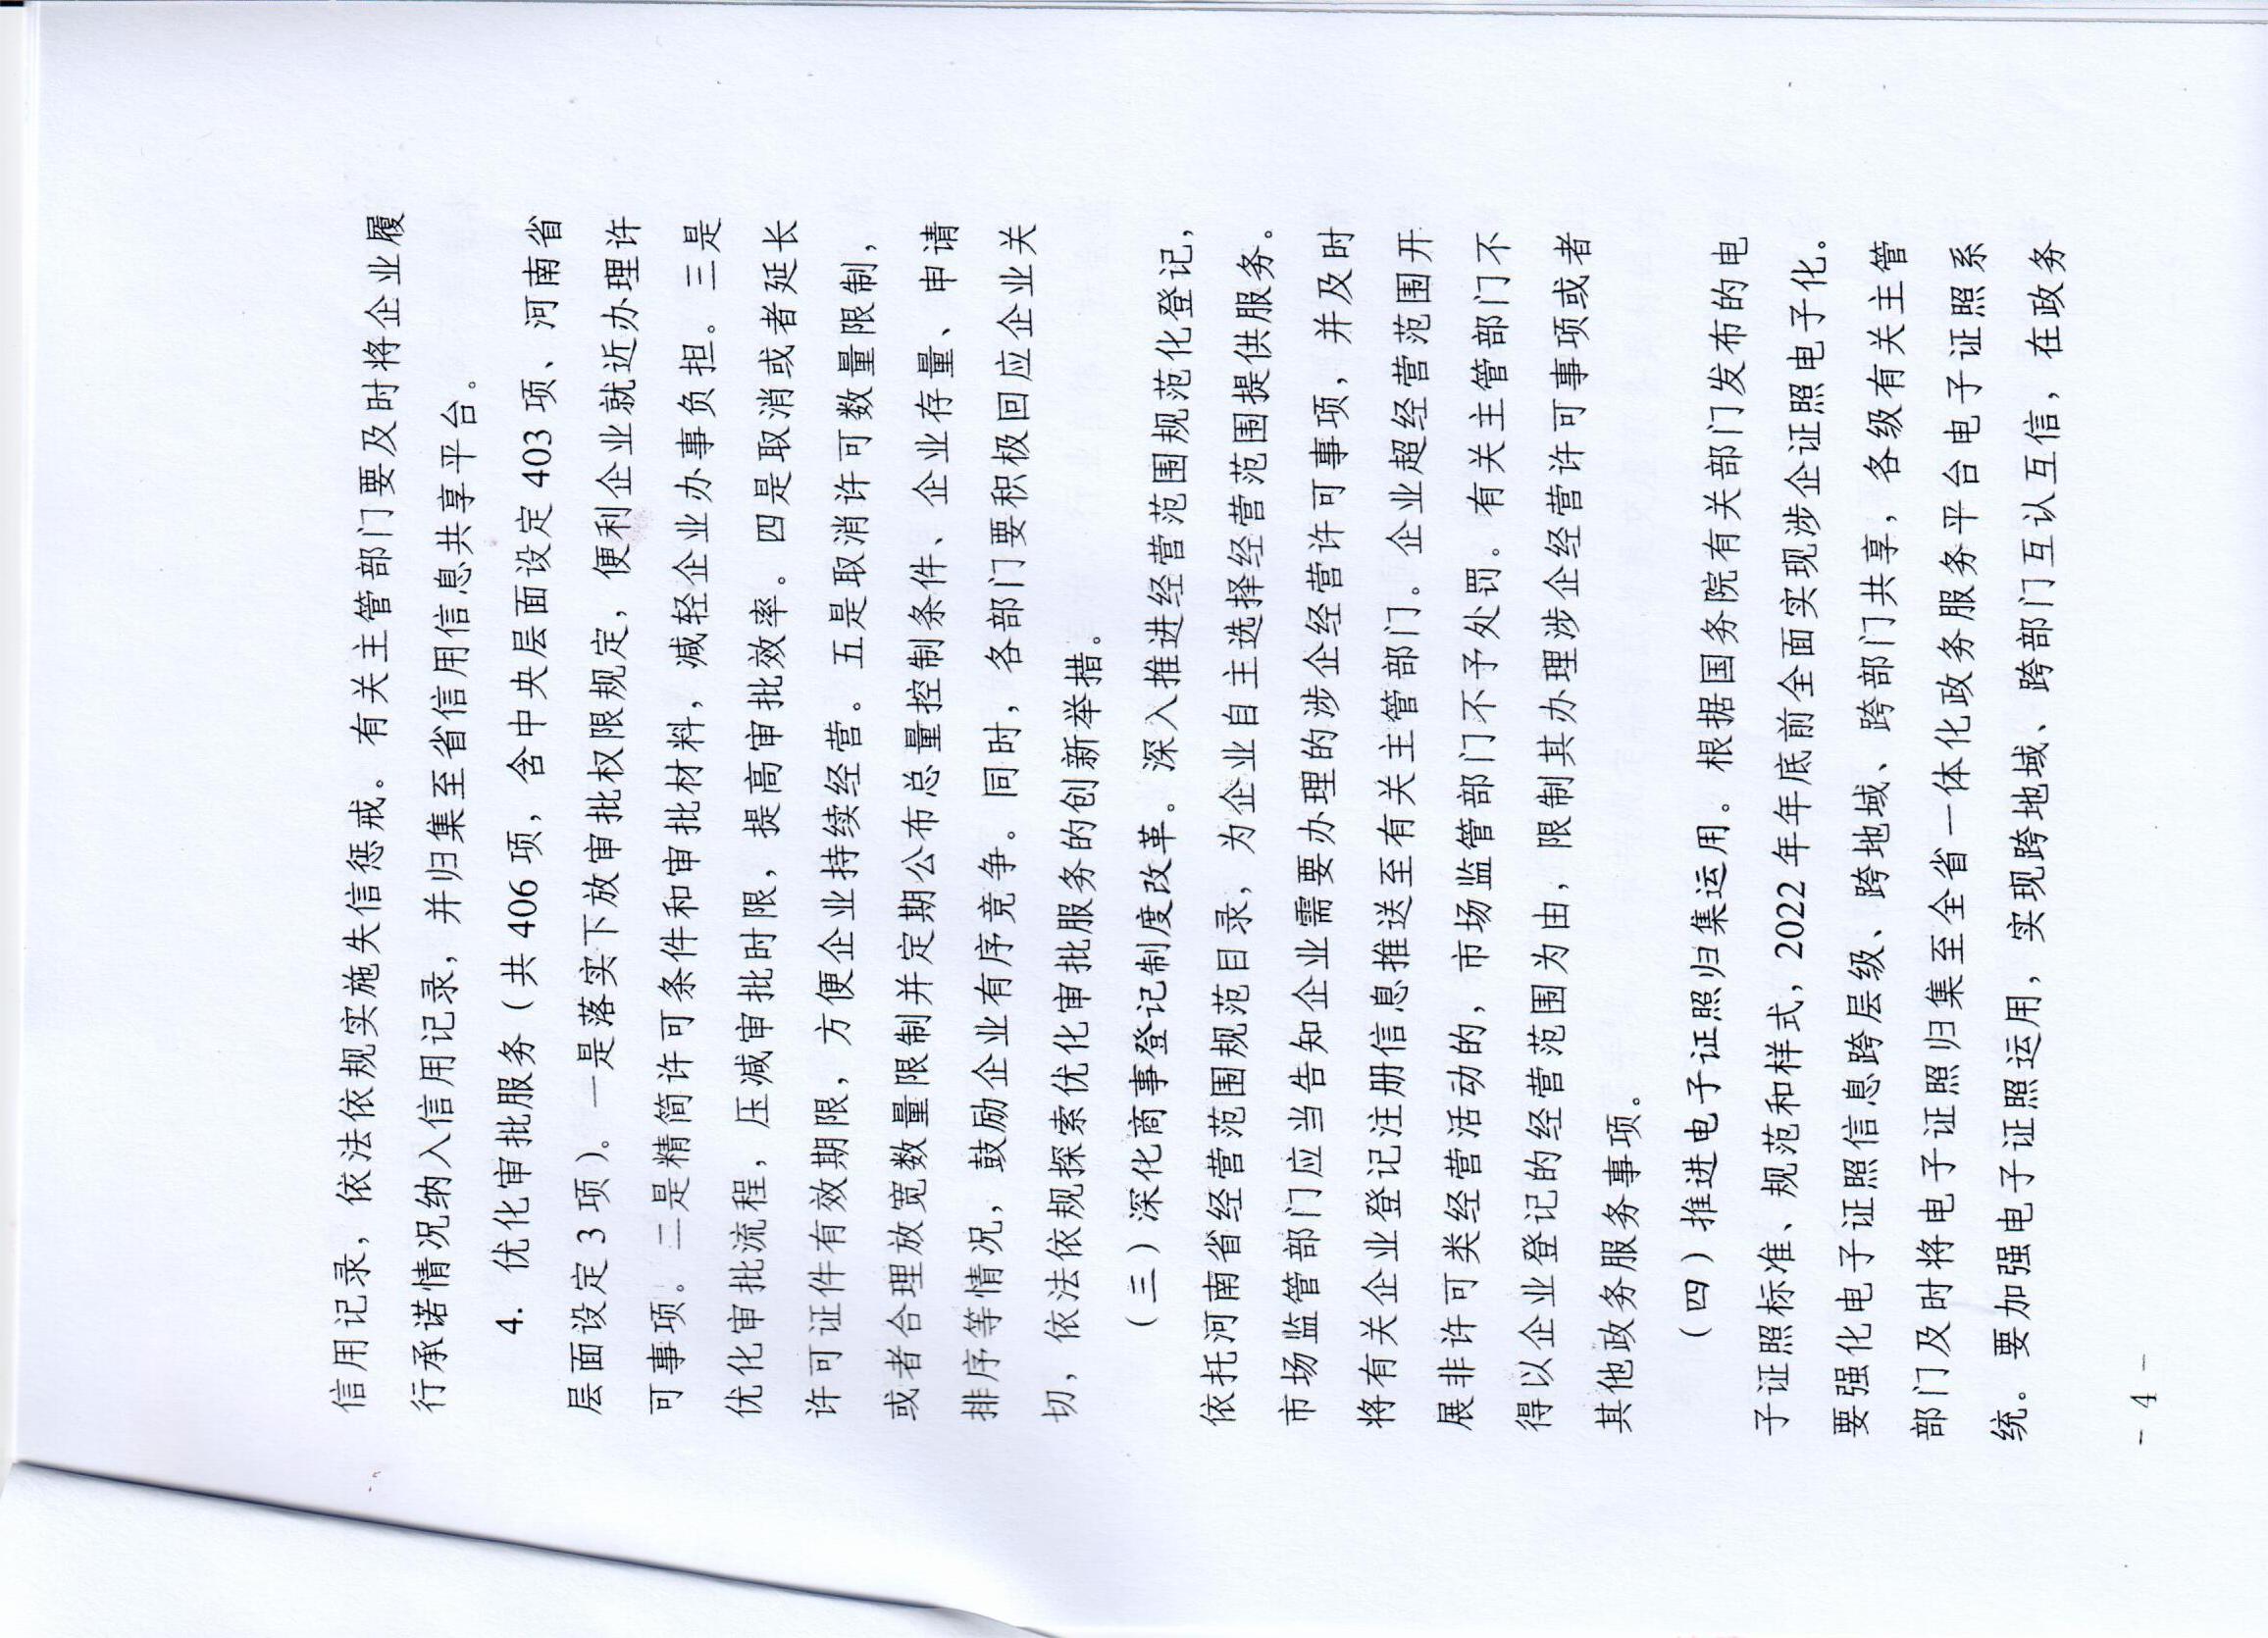 信用记录，依法依规实施失信惩戒。有关主管部门要及时将企业履
行承诺情况纳入信用记录，并归集至省信用信息共享平台。
4. 优化审批服务（共 406 项，含中央层面设定 403 项、河南省
层面设定 3 项）。一是落实下放审批权限规定，便利企业就近办理许
可事项。二是精简许可条件和审批材料，减轻企业办事负担。三是
优化审批流程，压减审批时限，提高审批效率。四是取消或者延长
许可证件有效期限，方便企业持续经营。五是取消许可数量限制，
或者合理放宽数量限制并定期公布总量控制条件、企业存量、申请
排序等情况，鼓励企业有序竞争。同时，各部门要积极回应企业关
切，依法依规探索优化审批服务的创新举措。
（三）深化商事登记制度改革。深入推进经营范围规范化登记，
依托河南省经营范围规范目录，为企业自主选择经营范围提供服务。
市场监管部门应当告知企业需要办理的涉企经营许可事项，并及时
将有关企业登记注册信息推送至有关主管部门。企业超经营范围开
展非许可类经营活动的，市场监管部门不予处罚。有关主管部门不
得以企业登记的经营范围为由，限制其办理涉企经营许可事项或者
其他政务服务事项。
（四）推进电子证照归集运用。根据国务院有关部门发布的电
子证照标准、规范和样式，2022 年年底前全面实现涉企证照电子化。
要强化电子证照信息跨层级、跨地域、跨部门共享，各级有关主管
部门及时将电子证照归集至全省一体化政务服务平台电子证照系
统。要加强电子证照运用，实现跨地域、跨部门互认互信，在政务
- 4 -